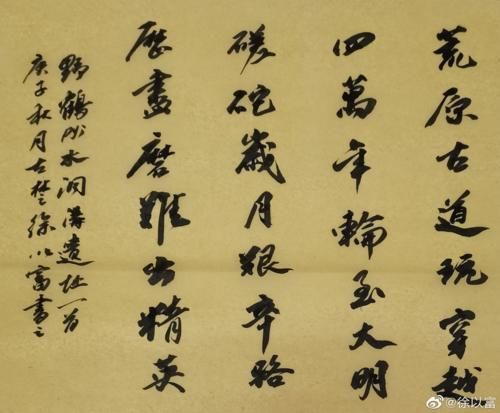 荒原古道玩穿越
四萬年輪至大明
磋砣歲月艱辛路
歷盡磨難出精英
野鶴水洞溝遺址一首
庚子秋月古楚徐以富書之
@徐以富